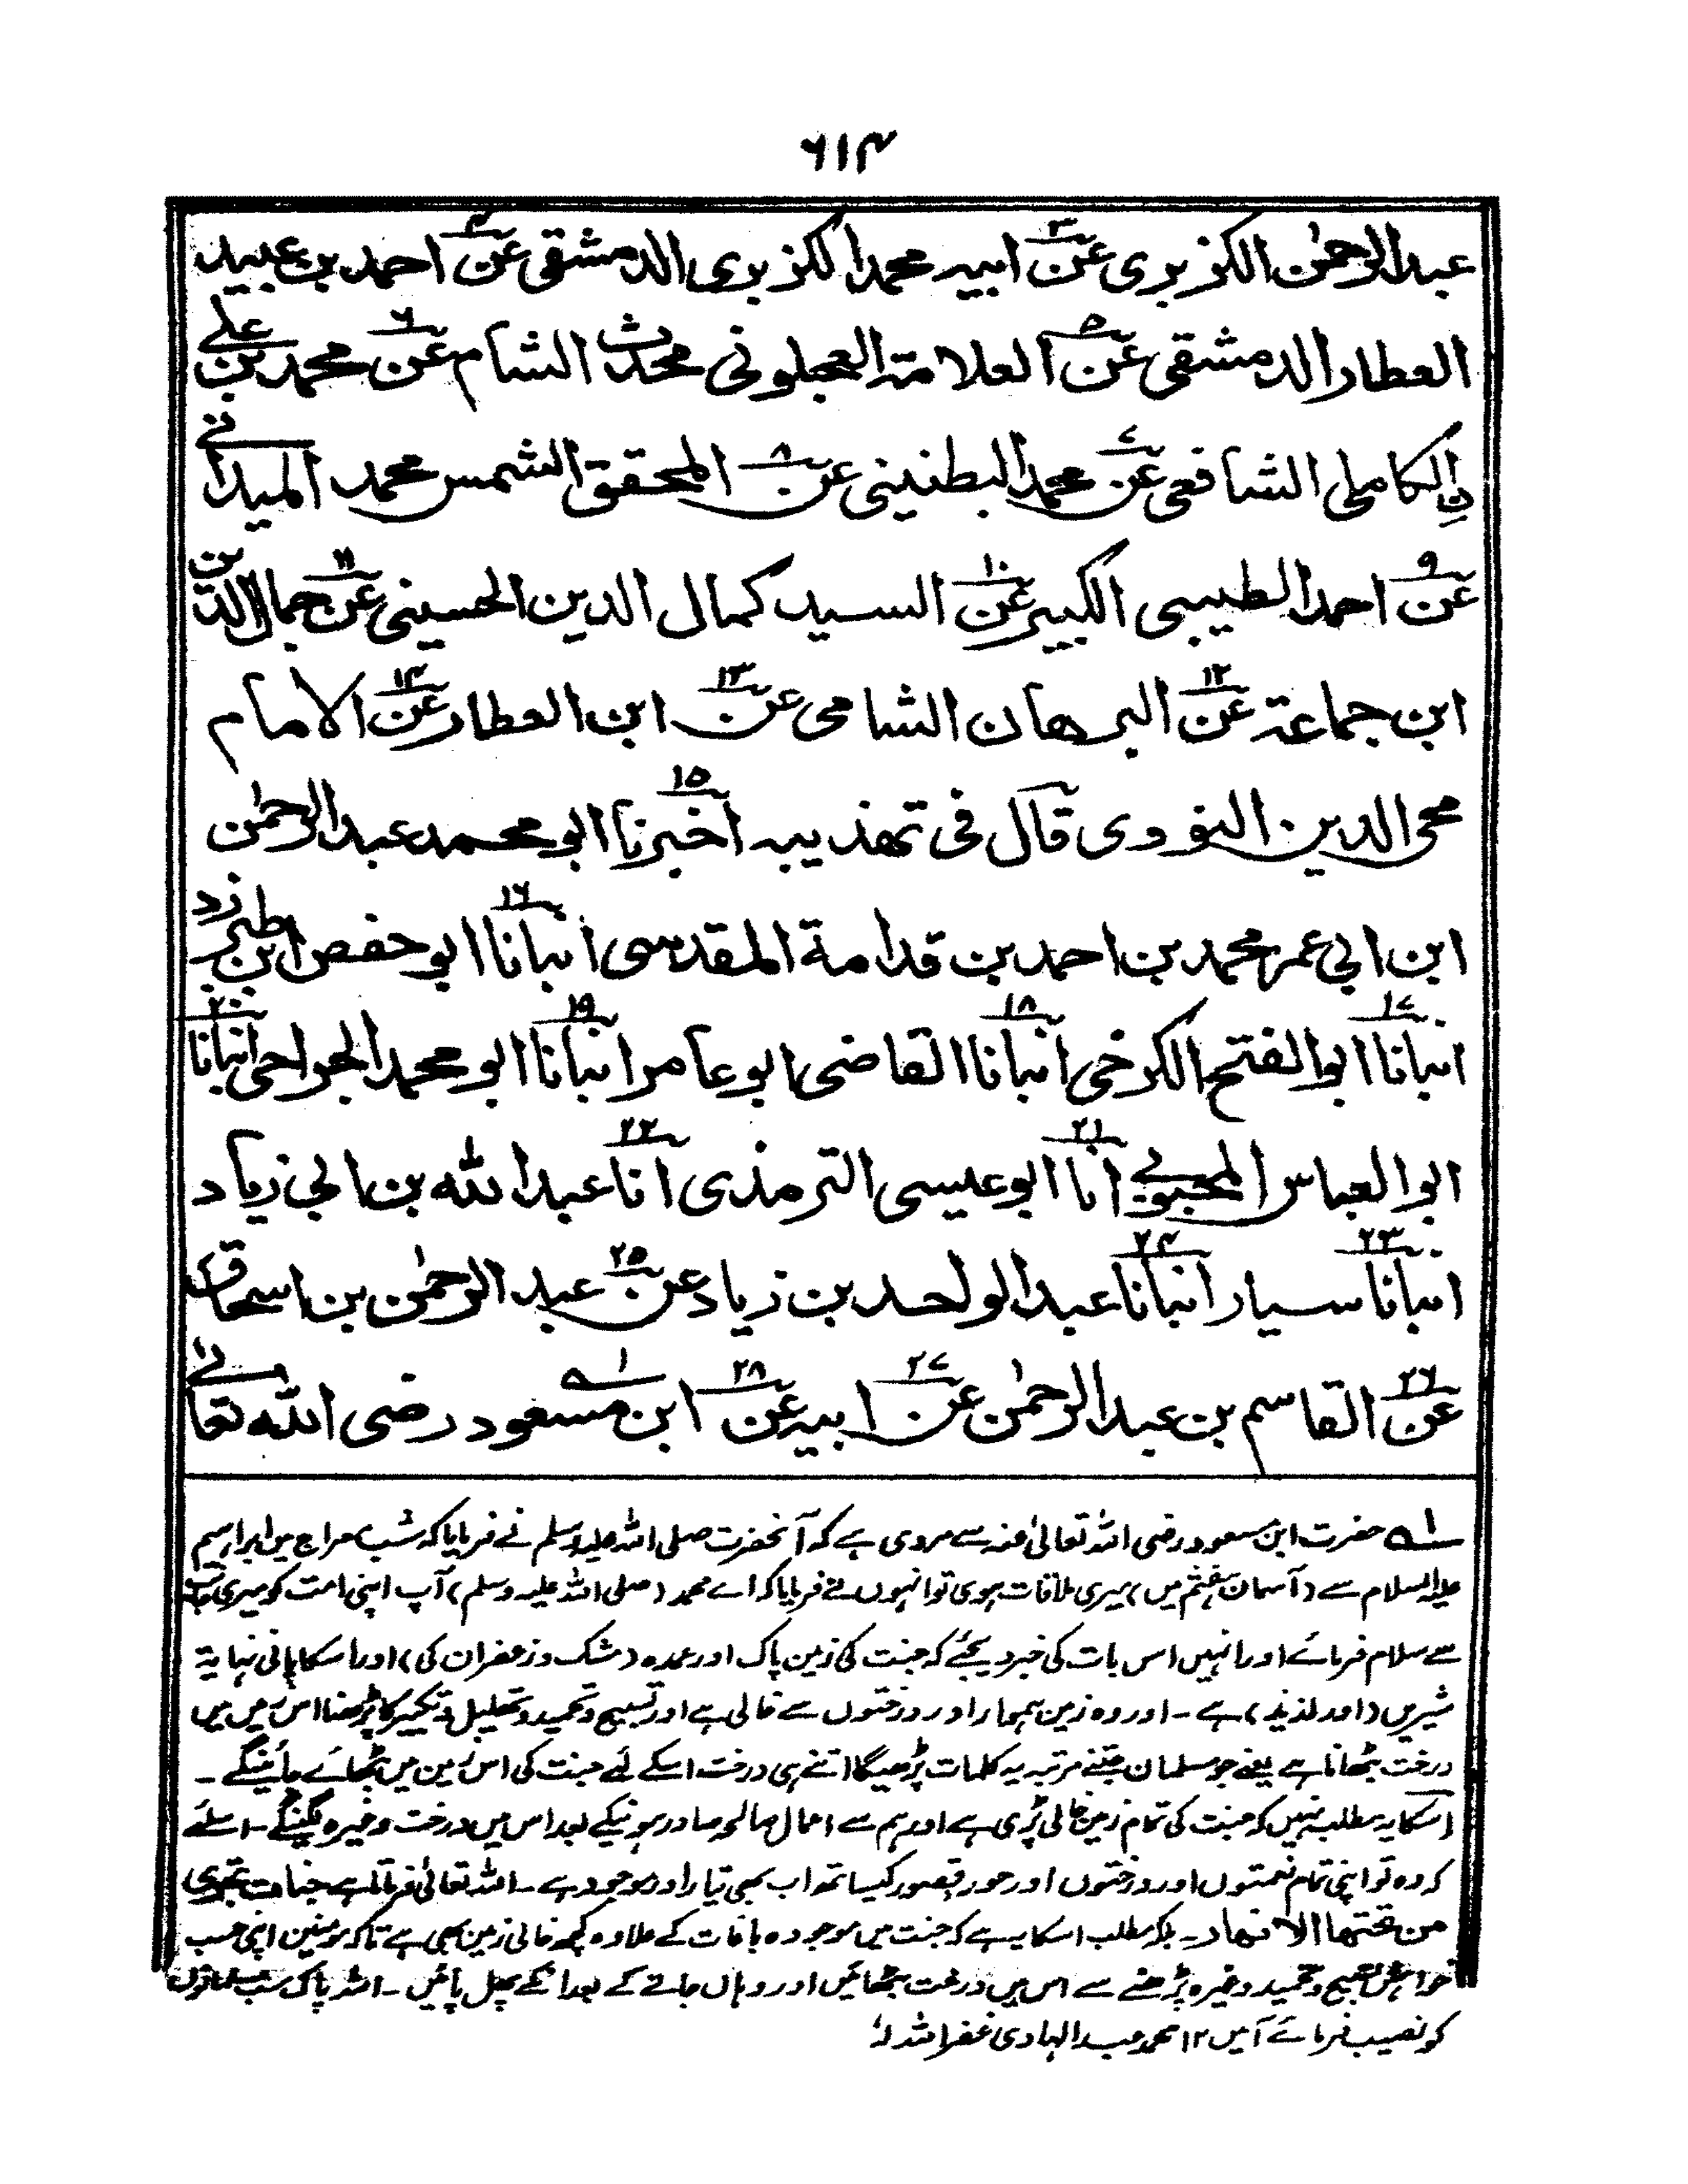 ۶۱۴
عبدالرحمٰن الکزبری عن۳ ابیه محمد الکزبری الدمشقی عن۴ احمد بن عبید
العطار الدمشقی عن۵ العلامة العجلونی محدث الشام عن۶ محمد بن علی
الکاملی الشافعی عن۷ محمد البطنینی عن۸ المحقق الشمس محمد المیدانی
عن۹ احمد الطیبی الکبیر عن۱۰ السید کمال الدین الحسینی عن۱۱ جمال الدین
ابن جماعة عن۱۲ البرهان الشامی عن۱۳ ابن العطار عن۱۴ الامام
محی الدین النووی قال فی تهذیبه اخبرنا۱۵ ابو محمد عبدالرحمٰن
ابن ابی عمر محمد بن احمد بن قدامة المقدسی انبانا۱۶ ابو حفص ابن طبرزد
انبانا۱۷ ابو الفتح الکرخی انبانا۱۸ القاضی ابو عامر انبانا۱۹ ابو محمد الجراحی انبانا۲۰
ابو العباس المحبوبی انا۲۱ ابو عیسی الترمذی انا۲۲ عبد اللّٰه بن ابی زیاد
انبانا۲۳ سیار انبانا۲۴ عبد الواحد بن زیاد عن۲۵ عبد الرحمٰن بن اسحاق
عن۲۶ القاسم بن عبدالرحمٰن عن۲۷ ابیه عن۲۸ ابن مسعود۱ رضی اللّٰه تعالیٰ
۱ حضرت ابن مسعود رضی اللہ تعالیٰ عنہ سے مروی ہے کہ آنحضرت صلی اللہ علیہ وسلم نے فرمایا کہ شب معراج میں ابراہیم
علیہ السلام سے (آسمان ہفتم میں) میری ملاقات ہوی تو انہوں نے فرمایا کہ اے محمد (صلی اللہ علیہ وسلم) آپ اپنی امت کو میری جانب
سے سلام فرمائے اور انہیں اس بات کی خبر دیجئے کہ جنت کی زمین پاک اور عمدہ (مشک و زعفران کی) اور اسکا پانی نہایۃ
شیریں (اور لذیذ) ہے ۔ اور وہ زمین ہموار اور درختوں سے خالی ہے اور تسبیح و تحمید و تہلیل و تکبیر کا پڑھنا اس میں
درخت بٹھانا ہے یعنے جو مسلمان جتنے مرتبہ یہ کلمات پڑھیگا اتنے ہی درخت اسکے لئے جنت کی اس زمین میں بٹھائے جائینگے ۔
اسکا یہ مطلب نہیں کہ جنت کی تمام زمین خالی پڑی ہے اور ہم سے اعمال صالحہ صادر ہونیکے بعد اس میں درخت وغیرہ لگینگے ۔ اسلئے
کہ وہ تو اپنی تمام نعمتوں اور درختوں اور حور قصور کیساتھ اب بھی تیار اور موجود ہے ۔ اللہ تعالیٰ فرماتا ہے جنات تجری
من تحتها الانهار ۔ بلکہ مطلب اسکا یہ ہے کہ جنت میں موجودہ باغات کے علاوہ کچھ خالی زمین بھی ہے تاکہ مومنین اپنی حسب
خواہش تسبیح و تحمید وغیرہ پڑھنے سے اس میں درخت بٹھائیں اور وہاں جانے کے بعد انکے پھل پائیں ۔ اللہ پاک سب مسلمانوں
کو نصیب فرمائے آمین ۱۲ محمد عبدالہادی غفر اللہ لہٗ